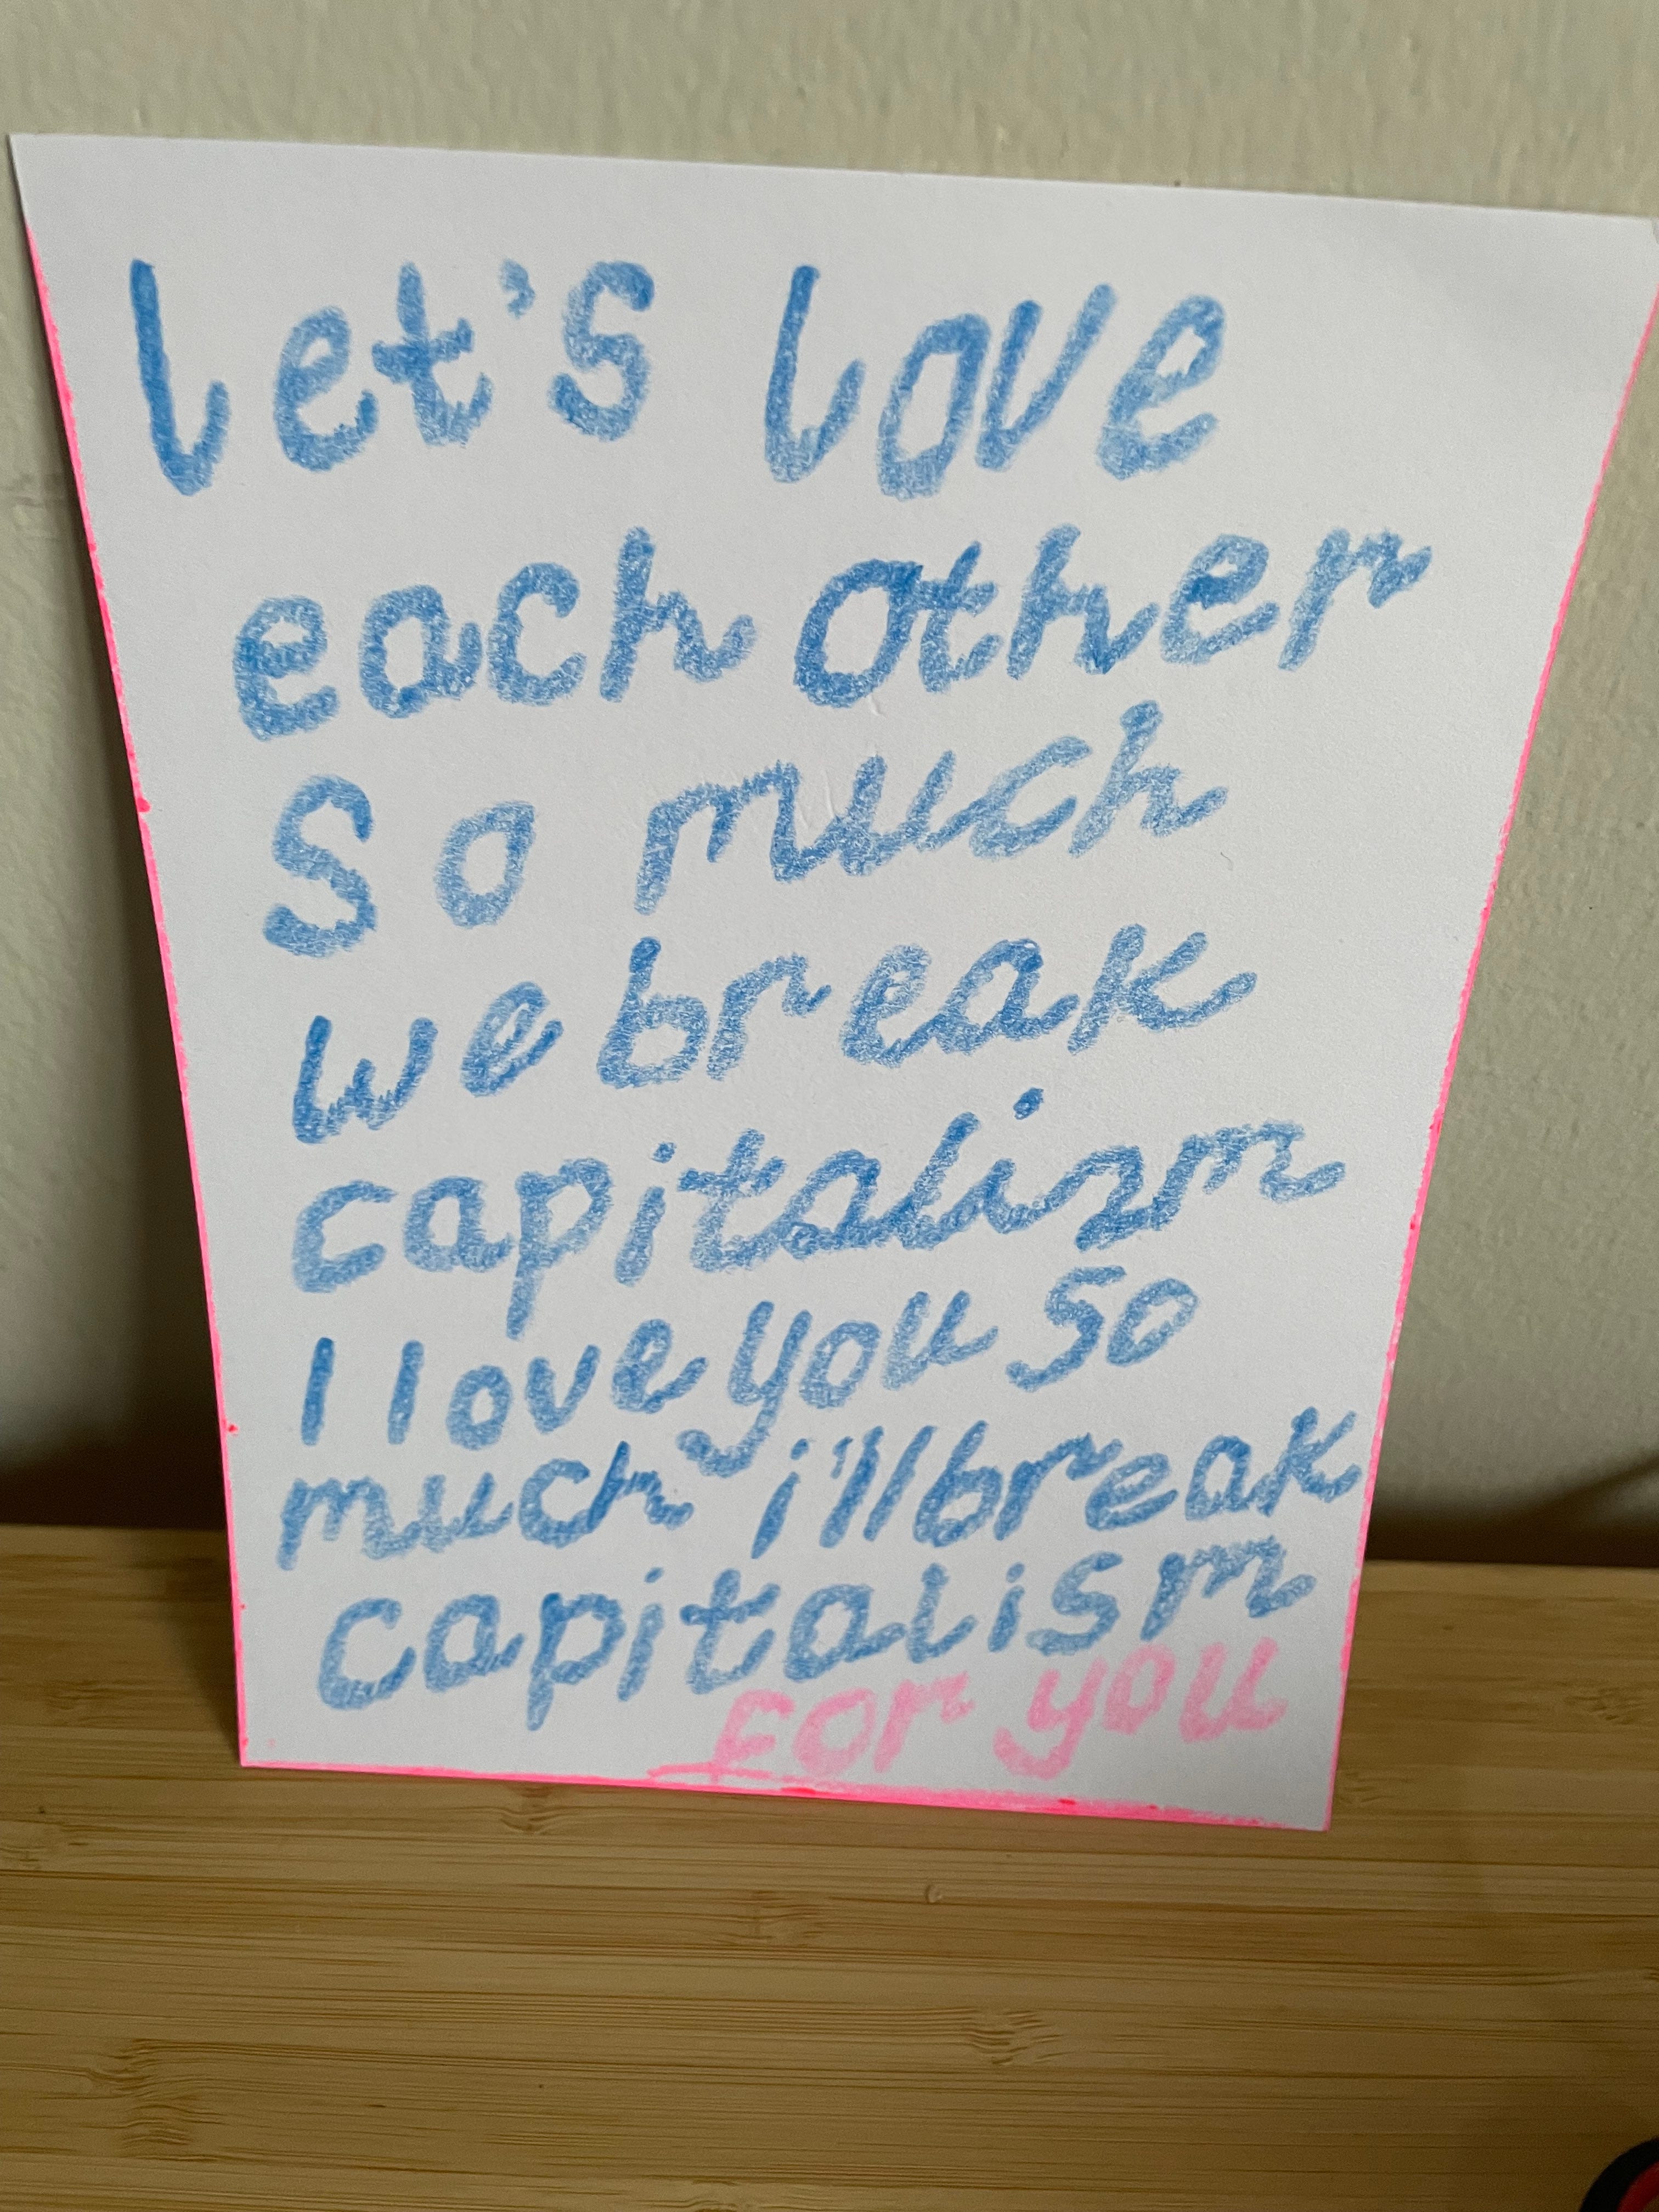 let's love
each other
so much
we break
capitalizm
I love you so
much i'll break
capitalism
for you